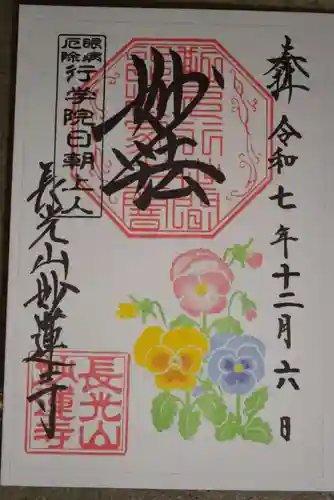 奉拝
令和七年十二月六日
妙法
眼病
厄除
行学院日朝上人
長光山妙蓮寺
長光山
妙蓮寺